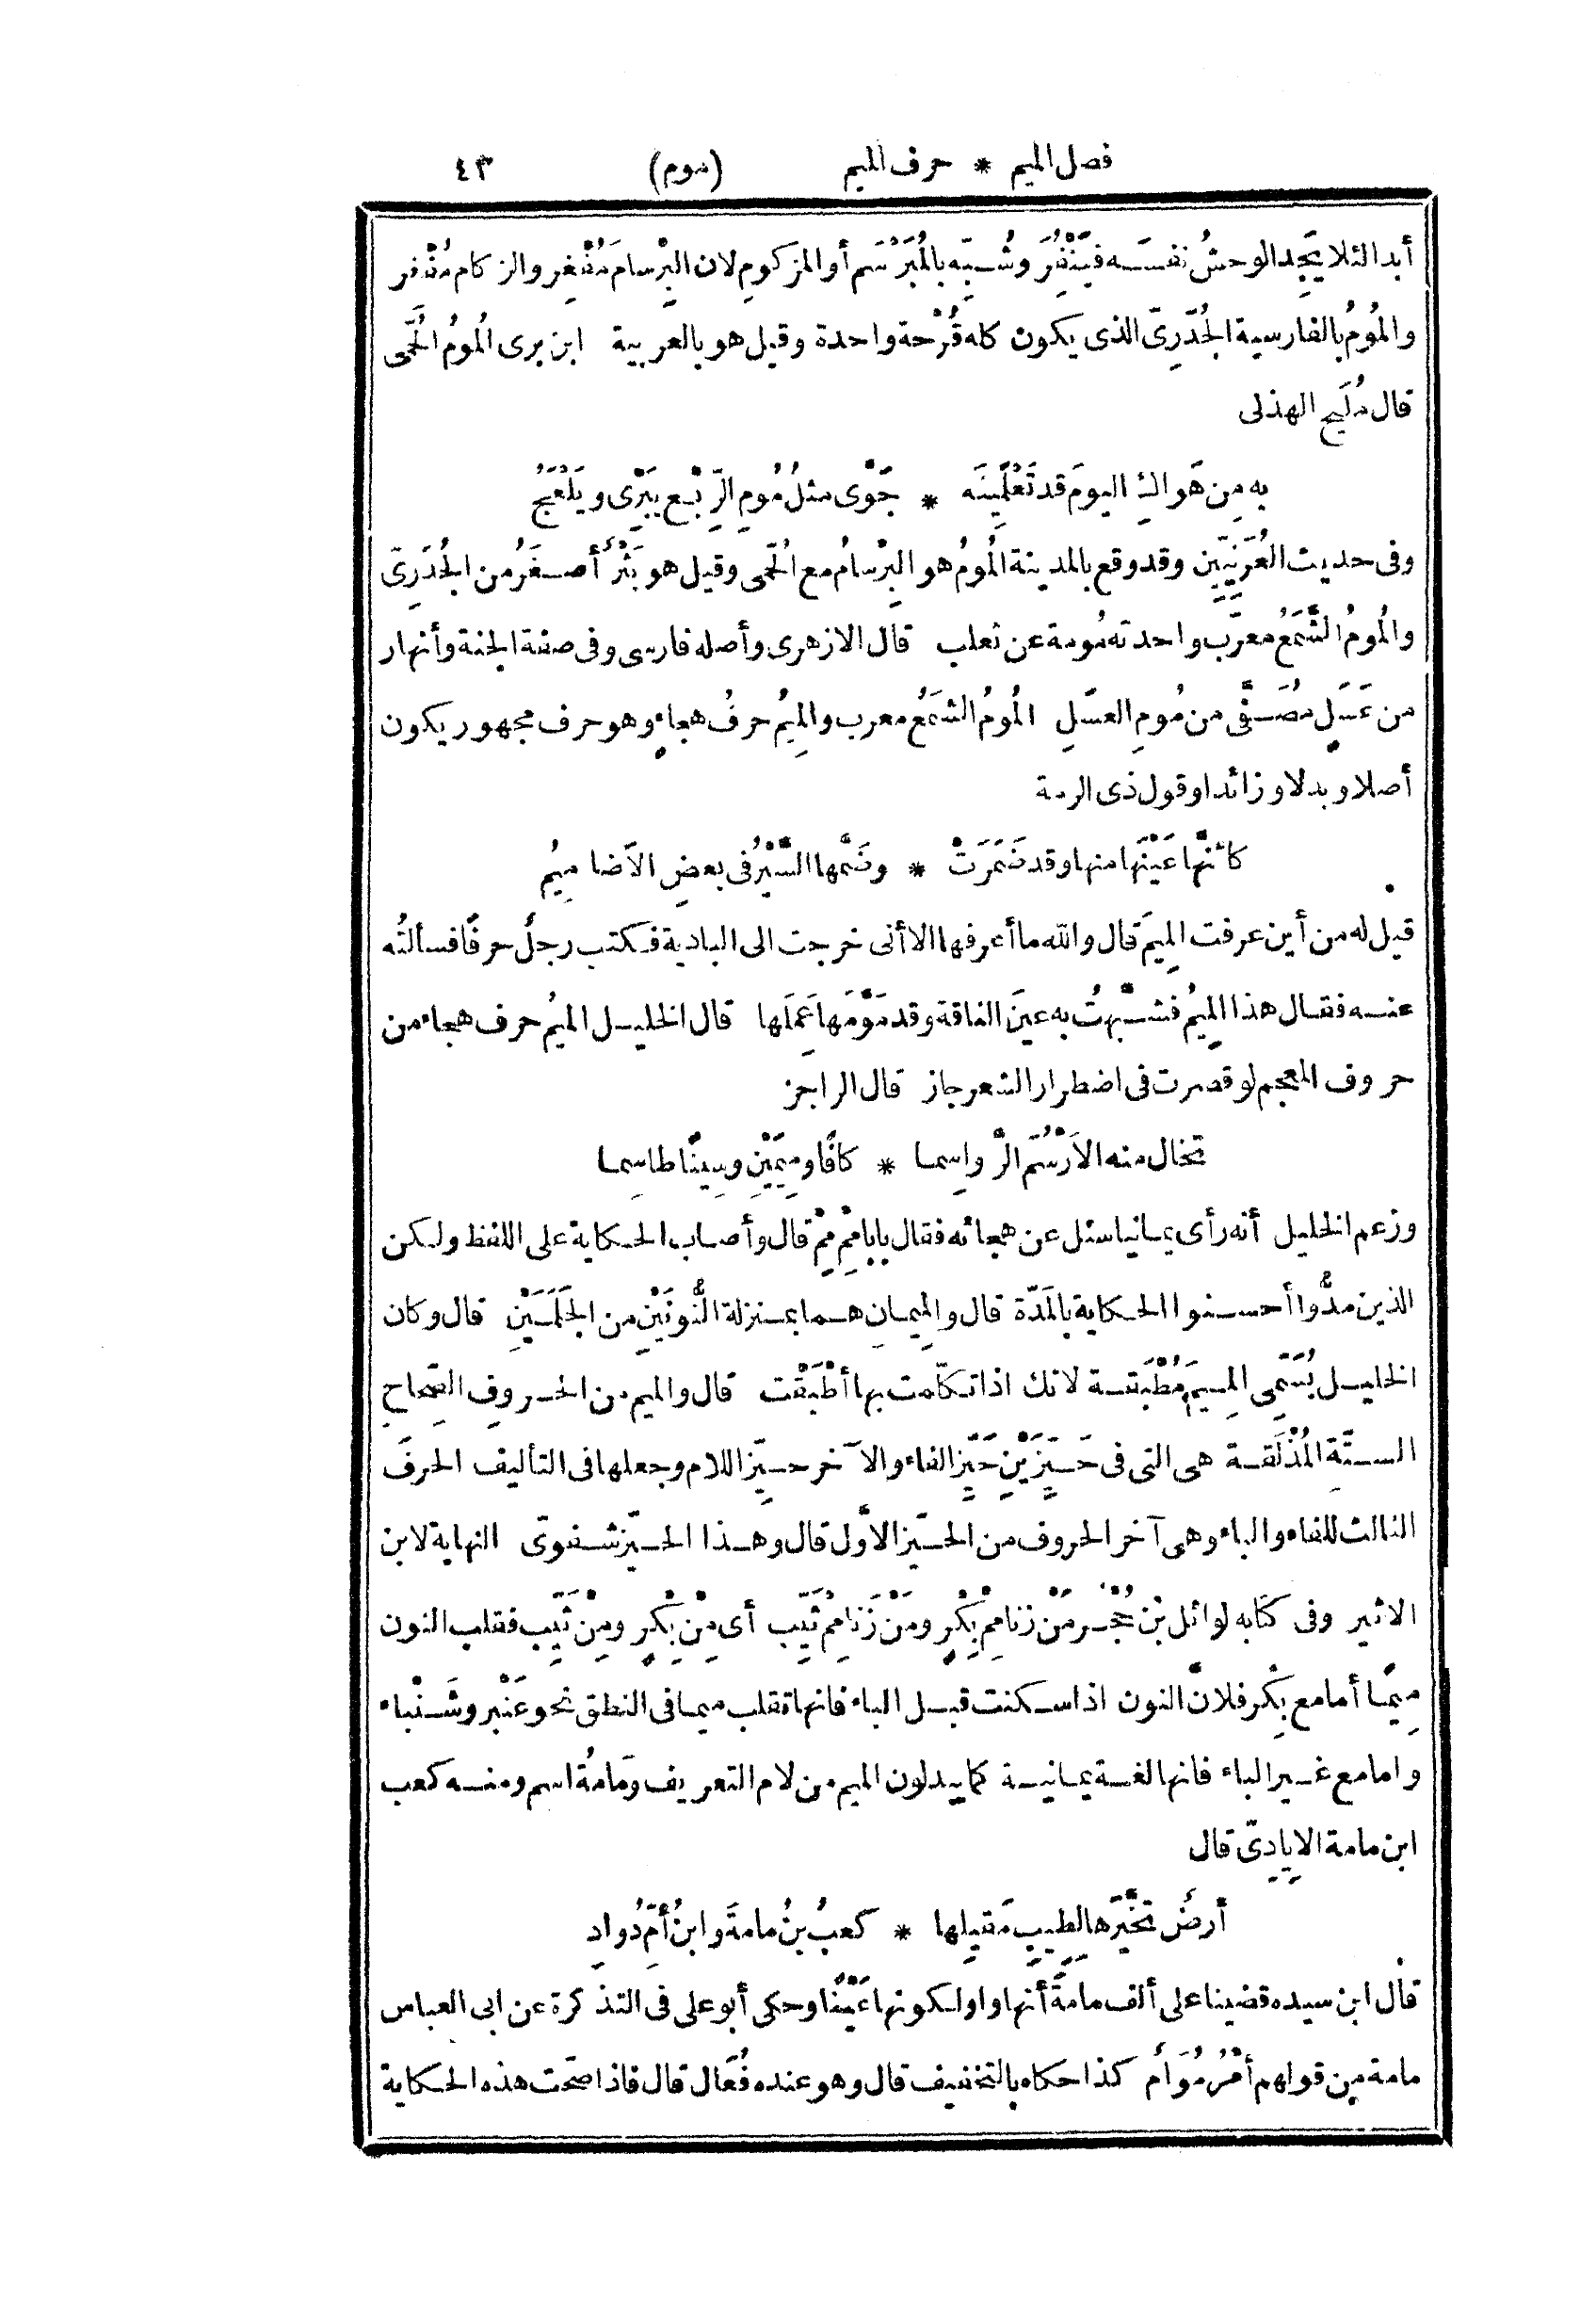 فصل الميم * حرف الميم (موم) ٤٣
أبدا لئلا يَجِد الوحشُ نفسَه فيَنْفُرَ وشُبِّه بالمُبَرْسَم أو المزكومِ لان البِرْسامَ مُفْغِر والزكام مُفْغر
والمُومُ بالفارسية الجُدَرِىّ الذى يكون كله قُرْحة واحدة وقيل هو بالعربية ابن برى المُومُ الحُمَّى
قال مُلَيح الهذلى
به مِن هَواكِ اليومَ قد تَعْلَمِينَه * جَوًى مثلُ مُومِ الرِّبْعِ يَبْرِى ويَلْعَجُ
وفى حديث العُرَنِيِّين وقد وقع بالمدينة المُومُ هو البِرْسامُ مع الحُمَّى وقيل هو بَثْرٌ أصغَرُ من الجُدَرِىّ
والمُومُ الشَّمَعُ معرَّب واحدته مُومة عن ثعلب قال الازهرى وأصله فارسى وفى صفة الجنة وأنهار
من عَسَلٍ مُصَفًّى من مُومِ العسَلِ المُومُ الشمَعُ معرب والمِيمُ حرفُ هجاءٍ وهو حرف مجهور يكون
أصلا وبدلا وزائدا وقول ذى الرمة
كأنَّها عَيْنَها منها وقد ضَمَرَتْ * وضَمَّها السَّيْرُ فى بعضِ الاَضا مِيمُ
قيل له من أين عرفت المِيمَ قال والله ما أعرفها الا أنى خرجت الى البادية فكتب رجلٌ حرفًا فسألتُه
عنه فقال هذا المِيمُ فشبَّهتُ به عينَ الناقة وقد مَوَّمَها عَمِلَها قال الخليل الميمُ حرف هجاء من
حروف المعجم لو قصرت فى اضطرار الشعر جاز قال الراجز
تخال منه الاَرْسُمَ الرَّواسِما * كافًا ومِيمَيْنِ وسِينًا طاسِما
وزعم الخليل أنه رأى يمانيا سئل عن هجائه فقال بابا مِمْ مِمْ قال وأصاب الحكاية على اللفظ ولكن
الذين مدُّوا أحسنوا الحكاية بالمَدّة قال والمِيمانِ هما بمنزلة النُّونَيْنِ من الجَلَمَيْنِ قال وكان
الخليل يُسَمِّى المِيمَ مُطْبَقة لانك اذا تكلمت بها أطْبَقْت قال والميم من الحروفِ الصِّحاحِ
الستَّةِ المُذْلَقة هى التى فى حَيِّزَيْنِ حَيِّز الفاء والآخر حيِّز اللام وجعلها فى التأليف الحرفَ
الثالث للفاء والباء وهى آخر الحروف من الحيّز الاوّل قال وهذا الحيّز شفوىّ النهاية لابن
الاثير وفى كتابه لوائل بْن حُجْر مَنْ زنا مِمْ بِكْرٍ ومَنْ زَنا مِمْ ثَيِّب أى مِنْ بِكْرٍ ومِنْ ثَيِّب فقلب النون
مِيمًا أما مع بِكْر فلانّ النون اذا سكنت قبل الباء فانها تقلب ميما فى النطق نحو عَنْبر وشَنْباء
واما مع غير الباء فانها لغة يمانية كما يبدلون الميم من لام التعريف ومَامةُ اسم ومنه كعب
ابن مامة الاِيادِىّ قال
أرضٌ تَخَيَّرَها لِطِيبِ مَقِيلِها * كعبُ بنُ مامةَ وابنُ أُمِّ دُوادِ
قال ابن سيده قضينا على ألف مامةَ أنها واو لكونها عَيْنًا وحكى أبو على فى التذكرة عن ابى العباس
مامة مِن قولهم أمْرٌ مُوَامٌ كذا حكاه بالتخفيف قال وهو عنده فُعَال قال فاذا صحّت هذه الحكاية